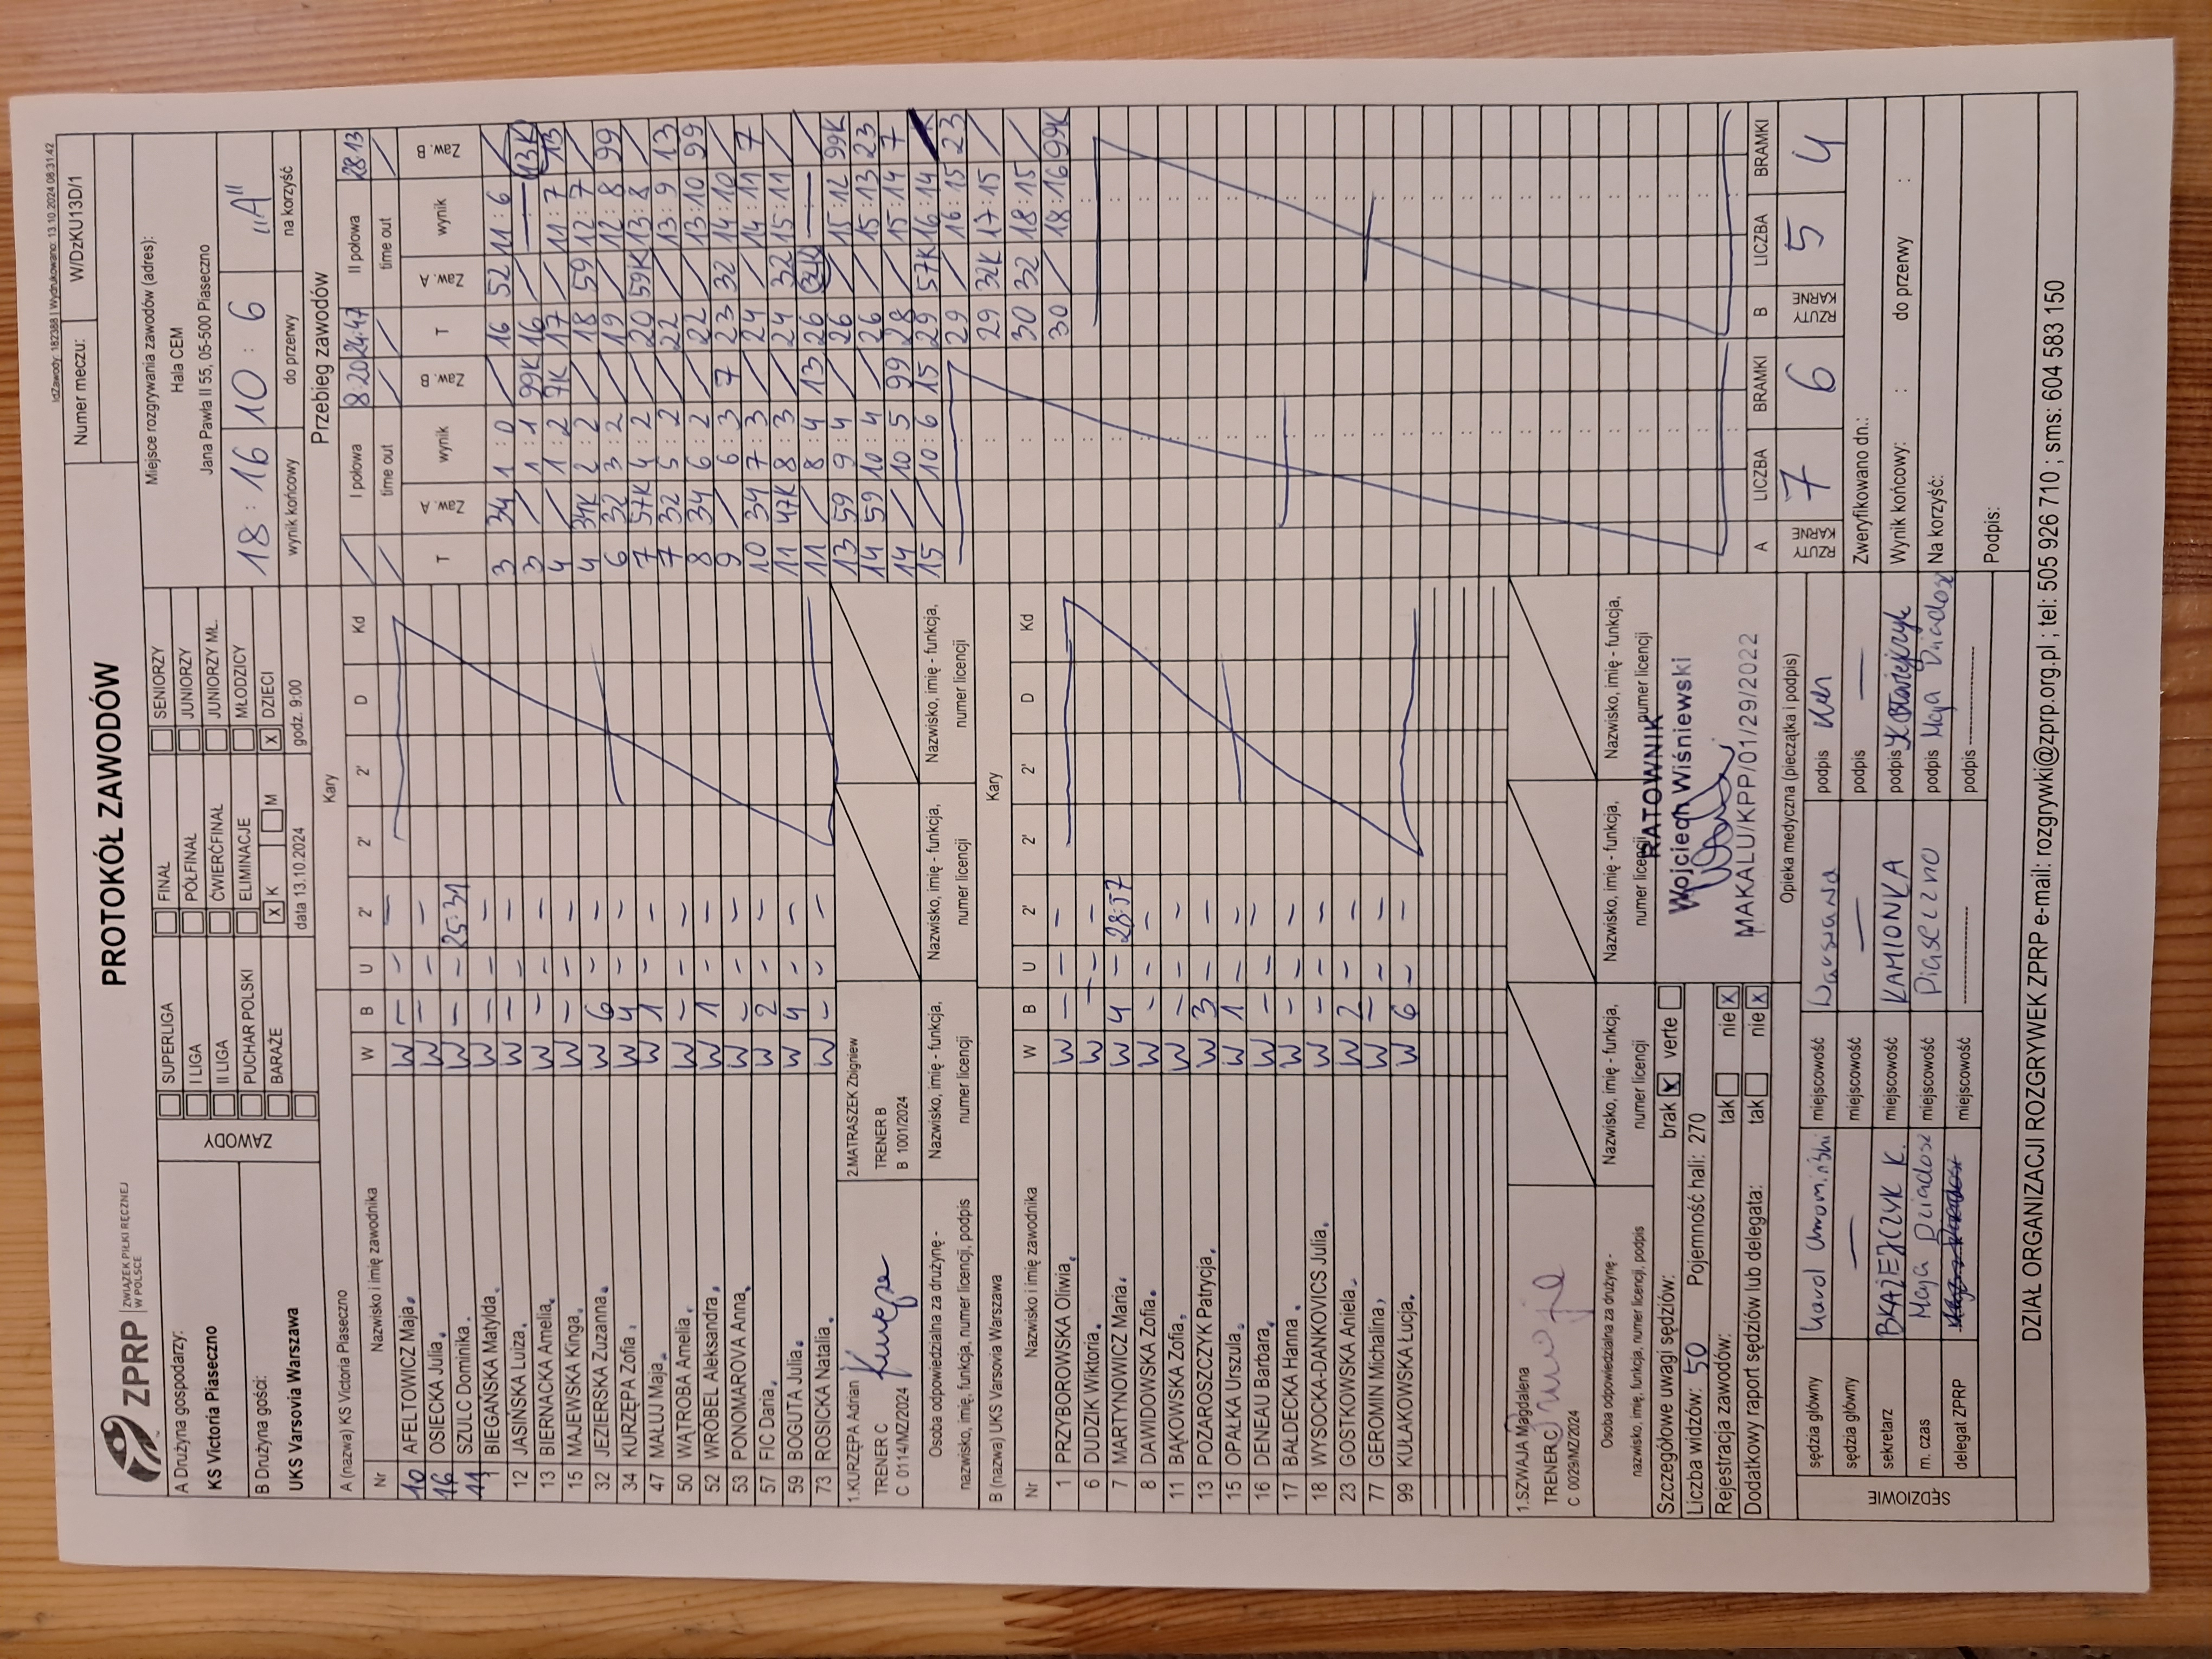 IdZawody: 182388 | Wydrukowano: 13.10.2024 08:31:42
ZPRP ZWIĄZEK PIŁKI RĘCZNEJ W POLSCE
PROTOKÓŁ ZAWODÓW
Numer meczu: W/DzKU13D/1
A Drużyna gospodarzy:
KS Victoria Piaseczno
B Drużyna gości:
UKS Varsovia Warszawa
ZAWODY
SUPERLIGA FINAŁ SENIORZY
I LIGA PÓŁFINAŁ JUNIORZY
II LIGA ĆWIERĆFINAŁ JUNIORZY MŁ.
PUCHAR POLSKI ELIMINACJE MŁODZICY
BARAŻE X K M X DZIECI
data 13.10.2024 godz. 9:00
Miejsce rozgrywania zawodów (adres):
Hala CEM
Jana Pawła II 55, 05-500 Piaseczno
18 : 16 10 : 6 "A"
wynik końcowy do przerwy na korzyść
A (nazwa) KS Victoria Piaseczno Kary
Nr Nazwisko i imię zawodnika W B U 2' 2' 2' D Kd
10 AFELTOWICZ Maja W - - -
16 OSIECKA Julia W - - -
11 SZULC Dominika W - - 25:31
1 BIEGAŃSKA Matylda W - - -
12 JASIŃSKA Luiza W - - -
13 BIERNACKA Amelia W - - -
15 MAJEWSKA Kinga W - - -
32 JEZIERSKA Zuzanna W 6 - -
34 KURZĘPA Zofia W 4 - -
47 MAŁUJ Maja W 1 - -
50 WĄTROBA Amelia W - - -
52 WRÓBEL Aleksandra W 1 - -
53 PONOMAROVA Anna W - - -
57 FIC Daria W 2 - -
59 BOGUTA Julia W 4 - -
73 ROSICKA Natalia W - - -
1.KURZĘPA Adrian 2.MATRASZEK Zbigniew
TRENER C TRENER B
C 0114/MZ/2024 B 1001/2024
Osoba odpowiedzialna za drużynę - nazwisko, imię, funkcja, numer licencji, podpis
Nazwisko, imię - funkcja, numer licencji
Nazwisko, imię - funkcja, numer licencji
Nazwisko, imię - funkcja, numer licencji
B (nazwa) UKS Varsovia Warszawa Kary
Nr Nazwisko i imię zawodnika W B U 2' 2' 2' D Kd
1 PRZYBOROWSKA Oliwia W - - -
6 DUDZIK Wiktoria W - - -
7 MARTYNOWICZ Maria W 4 - 28:57
8 DAWIDOWSKA Zofia W - - -
11 BĄKOWSKA Zofia W - - -
13 POZAROSZCZYK Patrycja W 3 - -
15 OPAŁKA Urszula W 1 - -
16 DENEAU Barbara W - - -
17 BAŁDECKA Hanna W - - -
18 WYSOCKA-DANKOVICS Julia W - - -
23 GOSTKOWSKA Aniela W 2 - -
77 GEROMIN Michalina W - - -
99 KUŁAKOWSKA Łucja W 6 - -
1.SZWAJA Magdalena
TRENER C
C 0029/MZ/2024
Osoba odpowiedzialna za drużynę - nazwisko, imię, funkcja, numer licencji, podpis
Nazwisko, imię - funkcja, numer licencji
Nazwisko, imię - funkcja, numer licencji
Nazwisko, imię - funkcja, numer licencji
Szczegółowe uwagi sędziów: brak X verte
Liczba widzów: 50 Pojemność hali: 270
Rejestracja zawodów: tak nie X
Dodatkowy raport sędziów lub delegata: tak nie X
RATOWNIK
Wojciech Wiśniewski
MAKALU/KPP/01/29/2022
Opieka medyczna (pieczątka i podpis)
SĘDZIOWIE
sędzia główny Karol Chromiński miejscowość Warszawa podpis
sędzia główny — miejscowość — podpis —
sekretarz BŁAŻEJCZYK K. miejscowość KAMIONKA podpis K Błażejczyk
m. czas Maja Dziadosz miejscowość Piaseczno podpis Maja Dziadosz
delegat ZPRP miejscowość podpis
Przebieg zawodów
I połowa 8:20 24:47 II połowa 28:13
time out time out
T Zaw. A wynik Zaw. B T Zaw. A wynik Zaw. B
3 34 1 : 0 / 16 52 11 : 6 /
3 / 1 : 1 99K 16 / — 13K
4 / 1 : 2 7K 17 / 11 : 7 13
4 34K 2 : 2 / 18 59 12 : 7 /
6 32 3 : 2 / 19 / 12 : 8 99
7 57K 4 : 2 / 20 59K 13 : 8 /
7 32 5 : 2 / 22 / 13 : 9 13
8 34 6 : 2 / 22 / 13 : 10 99
9 / 6 : 3 7 23 32 14 : 10 /
10 34 7 : 3 / 24 / 14 : 11 7
11 47K 8 : 3 / 24 32 15 : 11 /
11 / 8 : 4 13 26 34K — /
13 59 9 : 4 / 26 / 15 : 12 99K
14 59 10 : 4 / 26 / 15 : 13 23
14 / 10 : 5 99 28 / 15 : 14 7
15 / 10 : 6 15 29 57K 16 : 14
29 / 16 : 15 23
29 32K 17 : 15 /
30 32 18 : 15 /
30 / 18 : 16 99K
A LICZBA BRAMKI B LICZBA BRAMKI
RZUTY KARNE 7 6 RZUTY KARNE 5 4
Zweryfikowano dn.:
Wynik końcowy: : do przerwy :
Na korzyść:
Podpis:
DZIAŁ ORGANIZACJI ROZGRYWEK ZPRP e-mail: rozgrywki@zprp.org.pl ; tel: 505 926 710 ; sms: 604 583 150